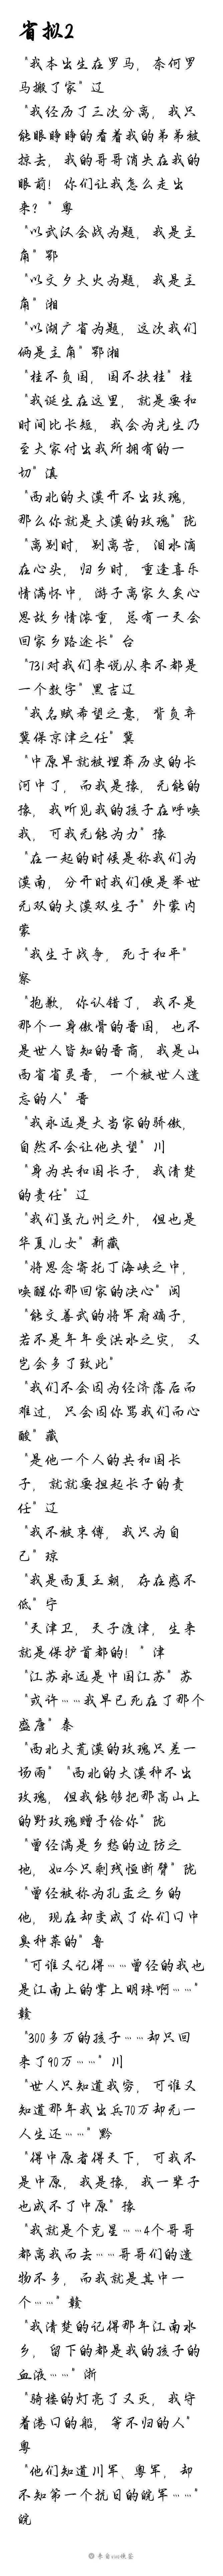 省拟2
“我本出生在罗马，奈何罗
马搬了家”辽
“我经历了三次分离，我只
能眼睁睁的看着我的弟弟被
掠去，我的哥哥消失在我的
眼前！你们让我怎么走出
来？”粤
“以武汉会战为题，我是主
角”鄂
“以文夕大火为题，我是主
角”湘
“以湖广省为题，这次我们
俩是主角”鄂湘
“桂不负国，国不扶桂”桂
“我诞生在这里，就是要和
时间比长短，我会为先生乃
至大家付出我所拥有的一
切”滇
“西北的大漠开不出玫瑰，
那么你就是大漠的玫瑰”陇
“离别时，别离苦，泪水滴
在心头，归乡时，重逢喜乐
情满怀中，游子离家久矣心
思故乡情浓重，总有一天会
回家乡路途长”台
“731对我们来说从来不都是
一个数字”黑吉辽
“我名赋希望之意，背负弃
冀保京津之任”冀
“中原早就被埋葬历史的长
河中了，而我是豫，无能的
豫，我听见我的孩子在呼唤
我，可我无能为力”豫
“在一起的时候是称我们为
漠南，分开时我们便是举世
无双的大漠双生子”外蒙内
蒙
“我生于战争，死于和平”
察
“抱歉，你认错了，我不是
那个一身傲骨的晋国，也不
是世人皆知的晋商，我是山
西省省灵晋，一个被世人遗
忘的人”晋
“我永远是大当家的骄傲，
自然不会让他失望”川
“身为共和国长子，我清楚
的责任”辽
“我们虽九州之外，但也是
华夏儿女”新藏
“将思念寄托丁海峡之中，
唤醒你那回家的决心”闽
“能文善武的将军府嫡子，
若不是年年受洪水之灾，又
岂会多了致此”
“我们不会因为经济落后而
难过，只会因你骂我们而心
酸”藏
“是他一个人的共和国长
子，就就要担起长子的责
任”辽
“我不被束缚，我只为自
己”琼
“我是西夏王朝，存在感不
低”宁
“天津卫，天子渡津，生来
就是保护首都的！”津
“江苏永远是中国江苏”苏
“或许……我早已死在了那个
盛唐”秦
“西北大荒漠的玫瑰只差一
场雨” “西北的大漠种不出
玫瑰，但我能够把那高山上
的野玫瑰赠予给你”陇
“曾经满是乡愁的边防之
地，如今只剩残恒断臂”陇
“曾经被称为孔孟之乡的
他，现在却变成了你们口中
臭种菜的”鲁
“可谁又记得……曾经的我也
是江南上的掌上明珠啊……”
赣
“300多万的孩子……却只回
来了90万……”川
“世人只知道我穷，可谁又
知道那年我出兵70万却无一
人生还……”黔
“得中原者得天下，可我不
是中原，我是豫，我一辈子
也成不了中原”豫
“我就是个克星……4个哥哥
都离我而去……哥哥们的遗
物不多，而我就是其中一
个……”赣
“我清楚的记得那年江南水
乡，留下的都是我的孩子的
血液……”浙
“骑楼的灯亮了又灭，我守
着港口的船，等不归的人”
粤
“他们知道川军、粤军，却
不知第一个抗日的皖军……”
皖